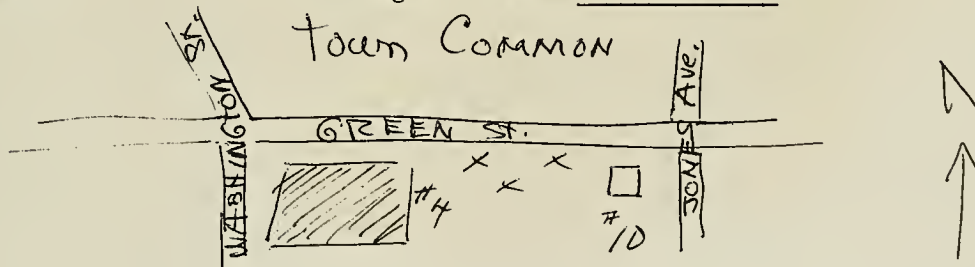 Town Common
WASHINGTON ST.
GREEN ST.
JONES Ave.
N
#4
x x x
#10